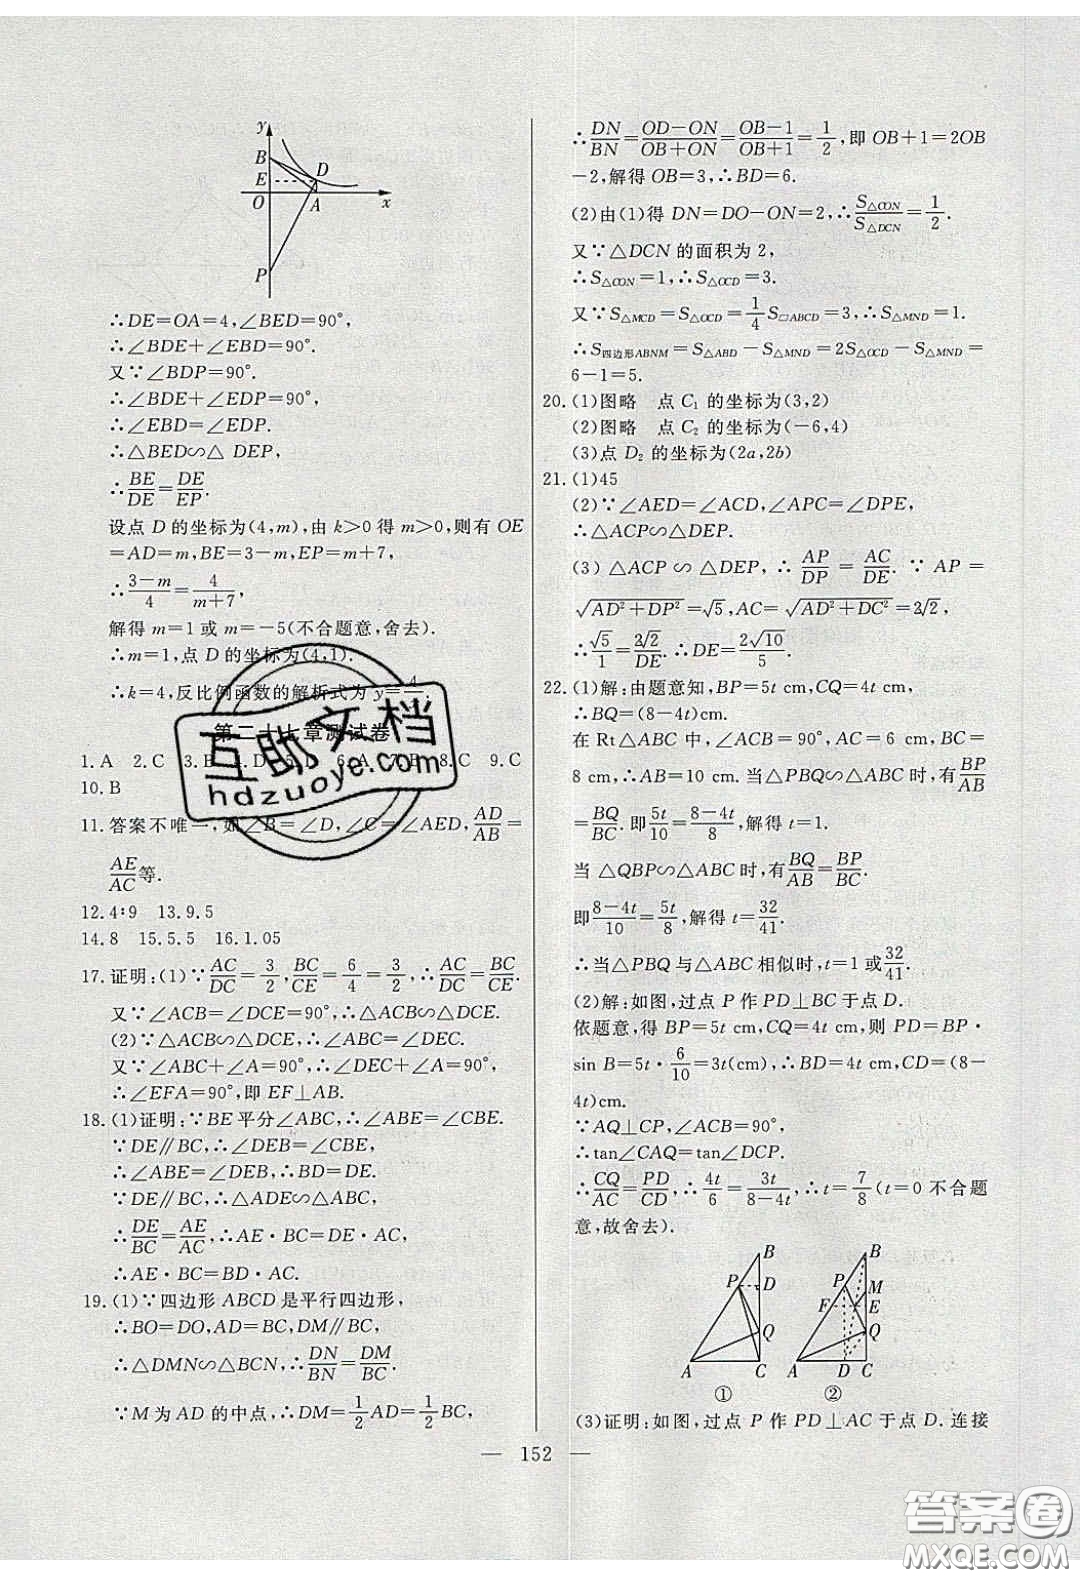 y
B
D
E
O
A
x
P
∴DE=OA=4,∠BED=90°,
∴∠BDE+∠EBD=90°.
又∵∠BDP=90°.
∴∠BDE+∠EDP=90°,
∴∠EBD=∠EDP.
∴△BED∽△ DEP,
∴BE/DE=DE/EP.
设点 D 的坐标为(4,m),由 k>0 得 m>0,则有 OE
=AD=m,BE=3-m,EP=m+7,
∴(3-m)/4=4/(m+7),
解得 m=1 或 m=-5(不合题意,舍去).
∴m=1,点 D 的坐标为(4,1).
∴k=4,反比例函数的解析式为 y=4
第二十七章测试卷
1.A 2.C 3.B 4.D 5.D 6.A 7.B 8.C 9.C
10.B
11.答案不唯一,如∠B=∠D,∠C=∠AED,AD/AB=
AE/AC等.
12.4∶9 13.9.5
14.8 15.5.5 16.1.05
17.证明:(1)∵AC/DC=3/2,BC/CE=6/4=3/2,∴AC/DC=BC/CE.
又∵∠ACB=∠DCE=90°,∴△ACB∽△DCE.
(2)∵△ACB∽△DCE,∴∠ABC=∠DEC.
又∵∠ABC+∠A=90°,∴∠DEC+∠A=90°,
∴∠EFA=90°,即 EF⊥AB.
18.(1)证明:∵BE 平分∠ABC,∴∠ABE=∠CBE.
∵DE∥BC,∴∠DEB=∠CBE,
∴∠ABE=∠DEB,∴BD=DE.
∵DE∥BC,∴△ADE∽△ABC,
∴DE/BC=AE/AC,∴AE·BC=AC·DE,
∴AE·BC=BD·AC.
19.(1)∵四边形 ABCD 是平行四边形,
∴BO=DO,AD=BC,DM∥BC,
∴△DMN∽△BCN,∴DN/BN=DM/BC.
∵M 为 AD 的中点,∴DM=1/2AD=1/2BC,
∴DN/BN=(OD-ON)/(OB+ON)=(OB-1)/(OB+1)=1/2,即 OB+1=2OB
-2,解得 OB=3,∴BD=6.
(2)由(1)得 DN=DO-ON=2,∴S△CON/S△DCN=1/2.
又∵△DCN 的面积为 2,
∴S△CON=1,∴S△OCD=3.
又∵S△MCD=S△OCD=1/4S▱ABCD=3,∴S△MND=1.
∴S四边形ABNM=S△ABD-S△MND=2S△OCD-S△MND=
6-1=5.
20.(1)图略 点 C₁ 的坐标为(3,2)
(2)图略 点 C₂ 的坐标为(-6,4)
(3)点 D₂ 的坐标为(2a,2b)
21.(1)45
(2)∵∠AED=∠ACD,∠APC=∠DPE,
∴△ACP∽△DEP.
(3) △ACP∽△DEP,∴AP/DP=AC/DE. ∵ AP=
√(AD²+DP²)=√5,AC=√(AD²+DC²)=2√2,
∴√5/1=2√2/DE.∴DE=2√10/5.
22.(1)解:由题意知,BP=5t cm,CQ=4t cm,
∴BQ=(8-4t)cm.
在 Rt△ABC 中,∠ACB=90°,AC=6 cm,BC=
8 cm,∴AB=10 cm.当△PBQ∽△ABC 时,有BP/AB
=BQ/BC.即5t/10=(8-4t)/8,解得 t=1.
当 △QBP∽△ABC 时,有BQ/AB=BP/BC.
即(8-4t)/10=5t/8,解得 t=32/41.
∴当△PBQ 与△ABC 相似时,t=1 或32/41.
(2)解:如图,过点 P 作 PD⊥BC 于点 D.
依题意,得 BP=5t cm,CQ=4t cm,则 PD=BP·
sin B=5t·6/10=3t(cm),∴BD=4t cm,CD=(8-
4t)cm.
∵AQ⊥CP,∠ACB=90°,
∴tan∠CAQ=tan∠DCP.
∴CQ/AC=PD/CD,∴4t/6=3t/(8-4t),∴t=7/8(t=0 不合题
意,故舍去).
B
P
D
Q
A
C
①
B
P
M
F
E
Q
A
D
C
②
(3)证明:如图,过点 P 作 PD⊥AC 于点 D.连接
— 152 —
互助文档
hdzuoye.com
答案圈
MXQE.COM